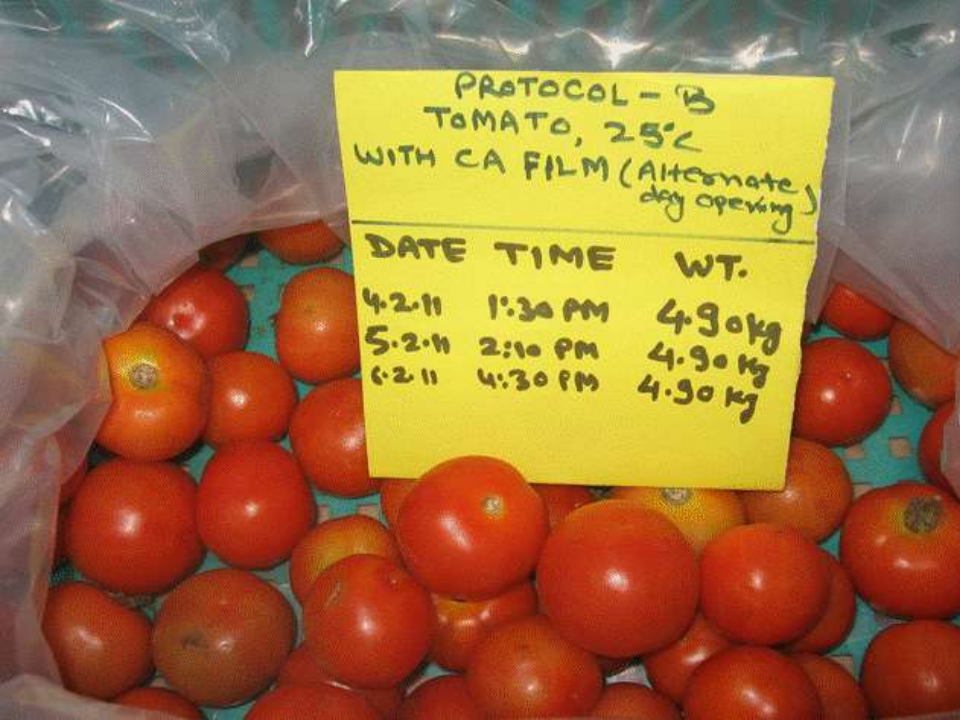 PROTOCOL - B
TOMATO, 25°C
WITH CA FILM (Alternate
day opening)
DATE TIME WT.
4.2.11 1:30 PM 4.90 kg
5.2.11 2:10 PM 4.90 kg
6.2.11 4:30 PM 4.90 kg